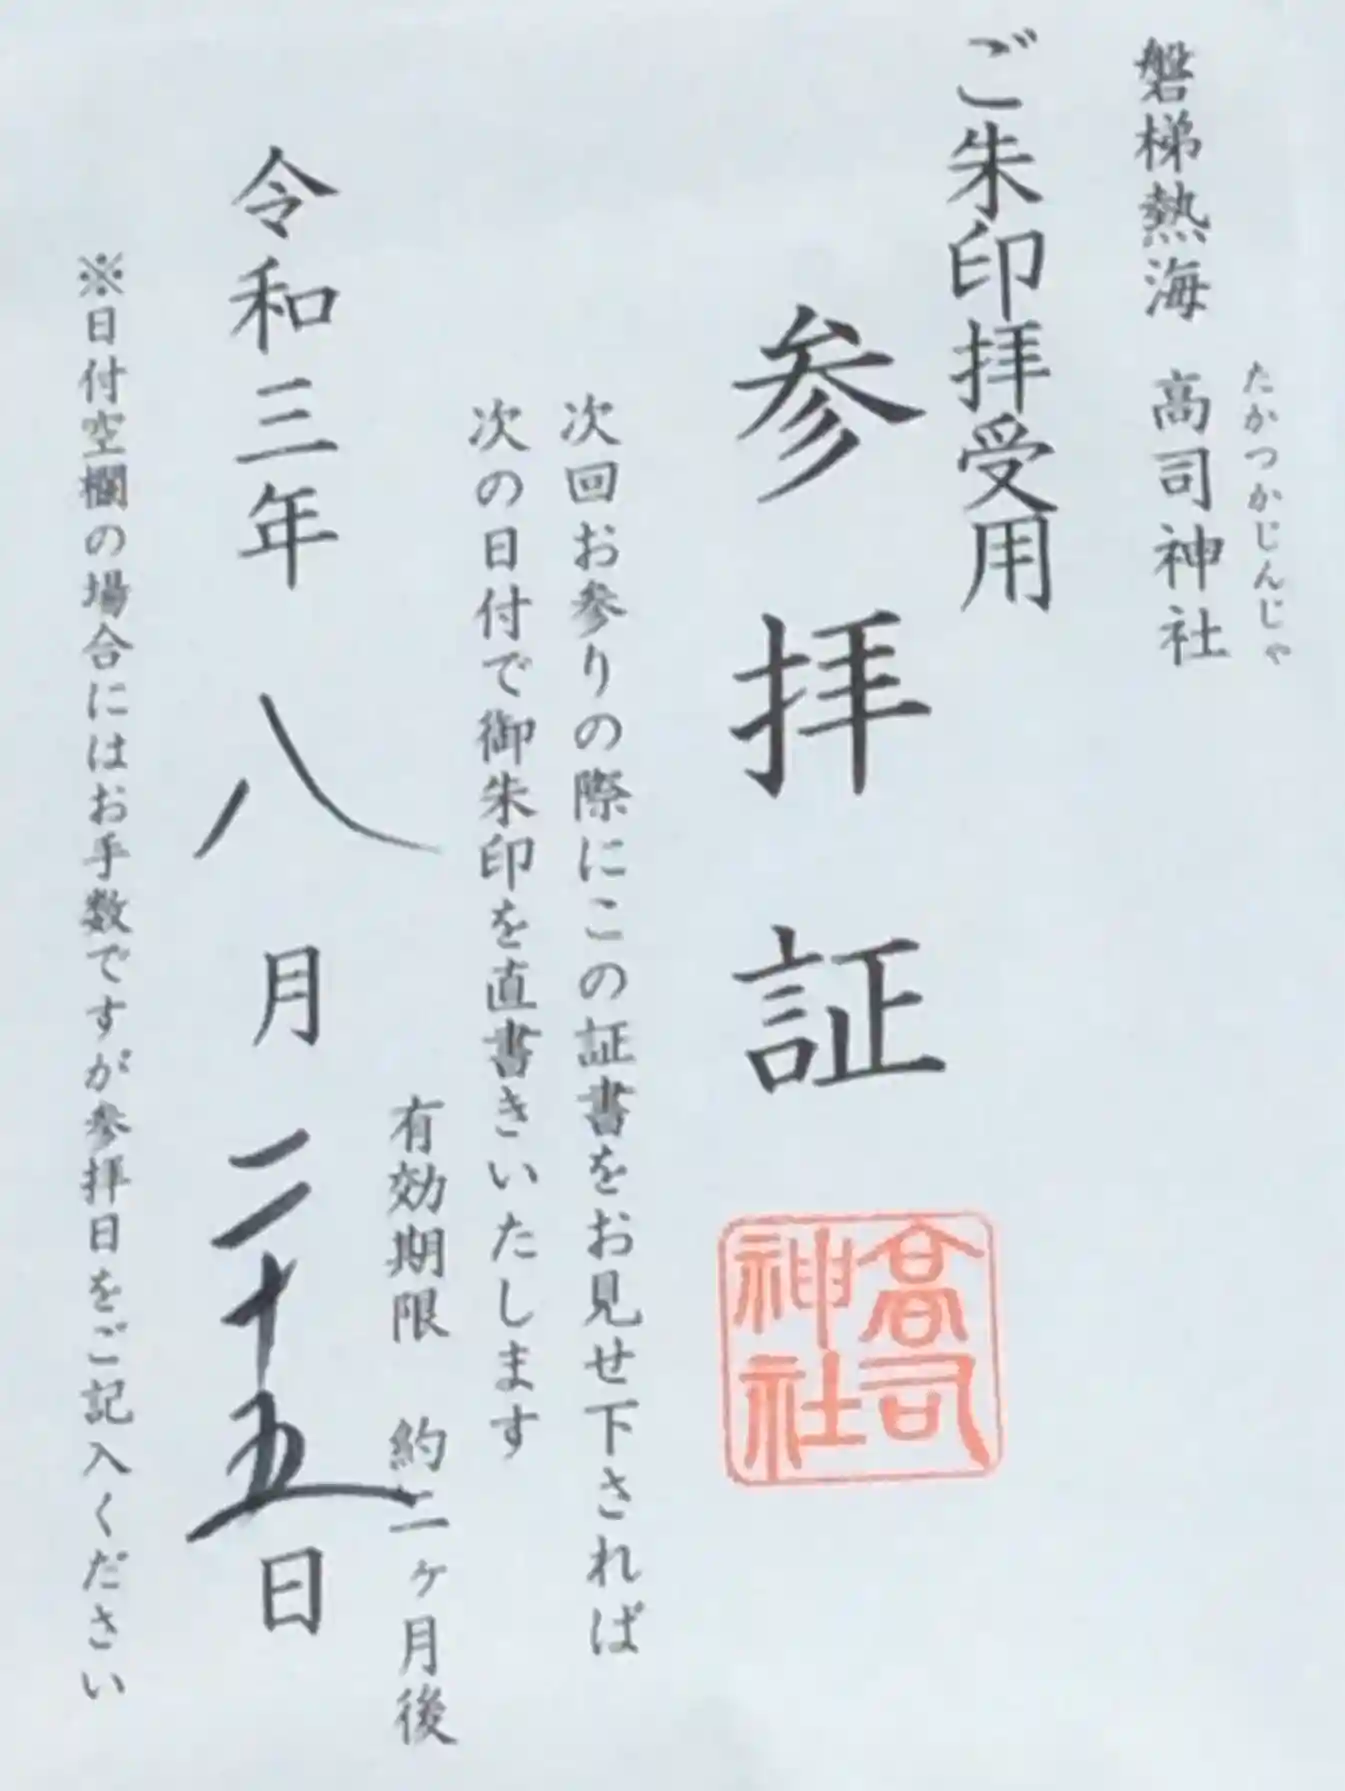 たかつかじんじゃ
磐梯熱海 高司神社
ご朱印拝受用
参拝証
高司
神社
次回お参りの際にこの証書をお見せ下されば
次の日付で御朱印を直書きいたします
有効期限 約二ヶ月後
令和三年 八月二十五日
※日付空欄の場合にはお手数ですが参拝日をご記入ください